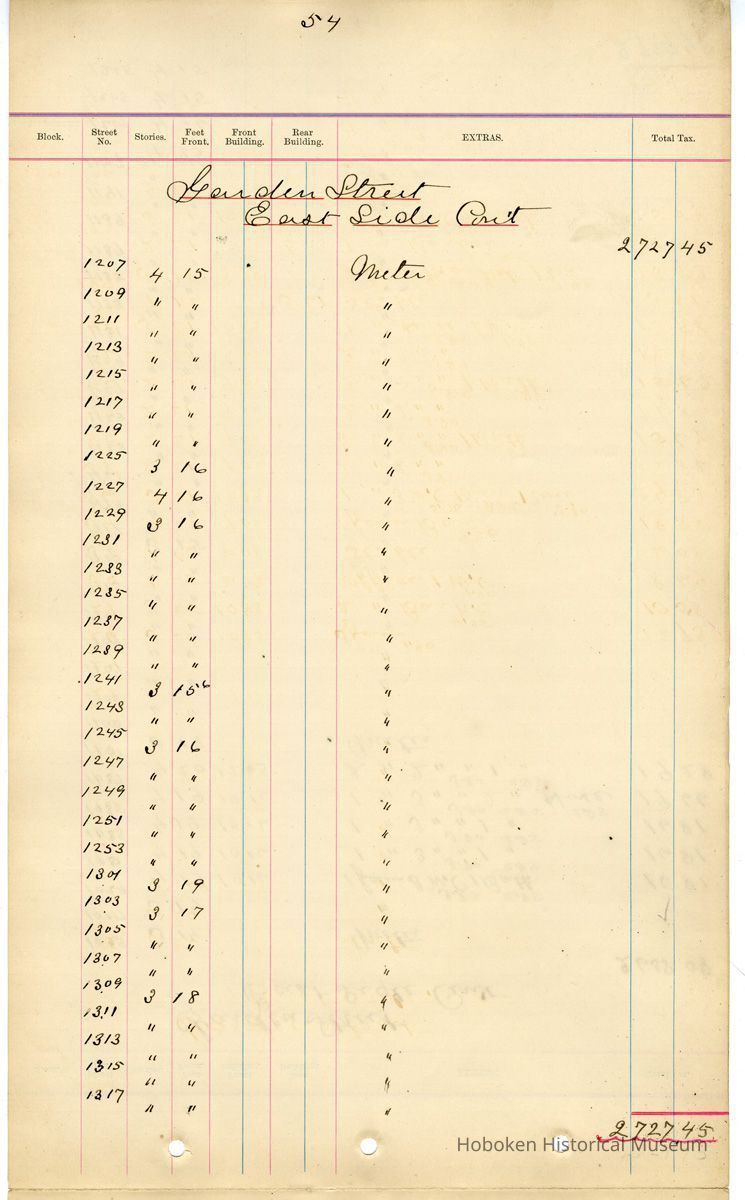 54
Block. Street No. Stories. Feet Front. Front Building. Rear Building. EXTRAS. Total Tax.
Garden Street
East Side Con't
2727 45
1207 4 15 Meter
1209 " " "
1211 " " "
1213 " " "
1215 " " "
1217 " " "
1219 " " "
1225 3 16 "
1227 4 16 "
1229 3 16 "
1231 " " "
1233 " " "
1235 " " "
1237 " " "
1239 " " "
1241 3 15⁶ "
1243 " " "
1245 3 16 "
1247 " " "
1249 " " "
1251 " " "
1253 " " "
1301 3 19 "
1303 3 17 "
1305 " " "
1307 " " "
1309 3 18 "
1311 " " "
1313 " " "
1315 " " "
1317 " " "
2727 45
Hoboken Historical Museum